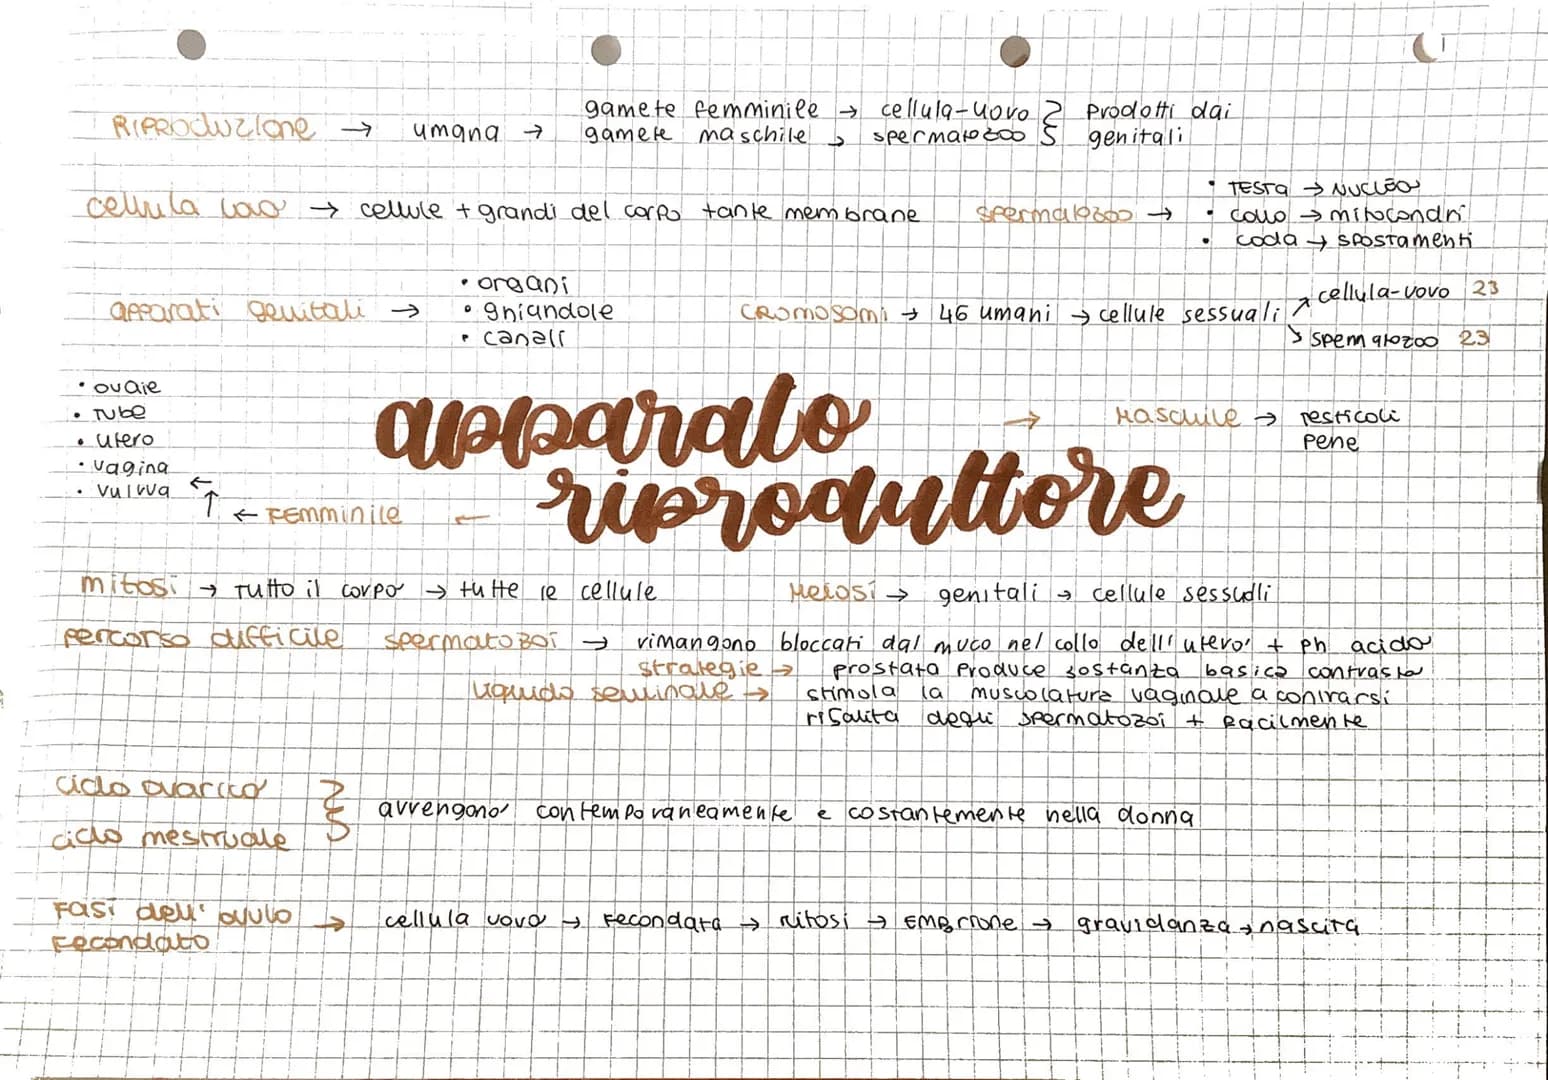 RIPRODUZIONE → umana → gamete femminile → cellula-uovo } prodotti dai
gamete maschile → spermatozoo } genitali
cellula uovo → cellule + grandi del corpo tante membrane
spermatozoo →
• TESTA → NUCLEO
• collo → mitocondri
• coda → spostamenti
apparati genitali →
• organi
• ghiandole
• canali
CROMOSOMI → 46 umani → cellule sessuali
↗ cellula-uovo 23
↘ spermatozoo 23
• ovaie
• Tube
• utero
• vagina
• vulvva
← FEMMINILE ←
apparato
riproduttore
→ MASCHILE → testicoli
pene
mitosi → Tutto il corpo → tutte le cellule
Meiosi → genitali → cellule sessuali
percorso difficile spermatozoi → rimangono bloccati dal muco nel collo dell'utero + ph acido
strategie → prostata produce sostanza basica contrasta
liquido seminale → stimola la muscolatura vaginale a contrarsi
risalita degli spermatozoi + facilmente
ciclo ovarico
ciclo mestruale
} avvengono contemporaneamente e costantemente nella donna
Fasi dell'ovulo → cellula uovo → fecondata → Mitosi → EMBRIONE → gravidanza → nascita
Fecondato